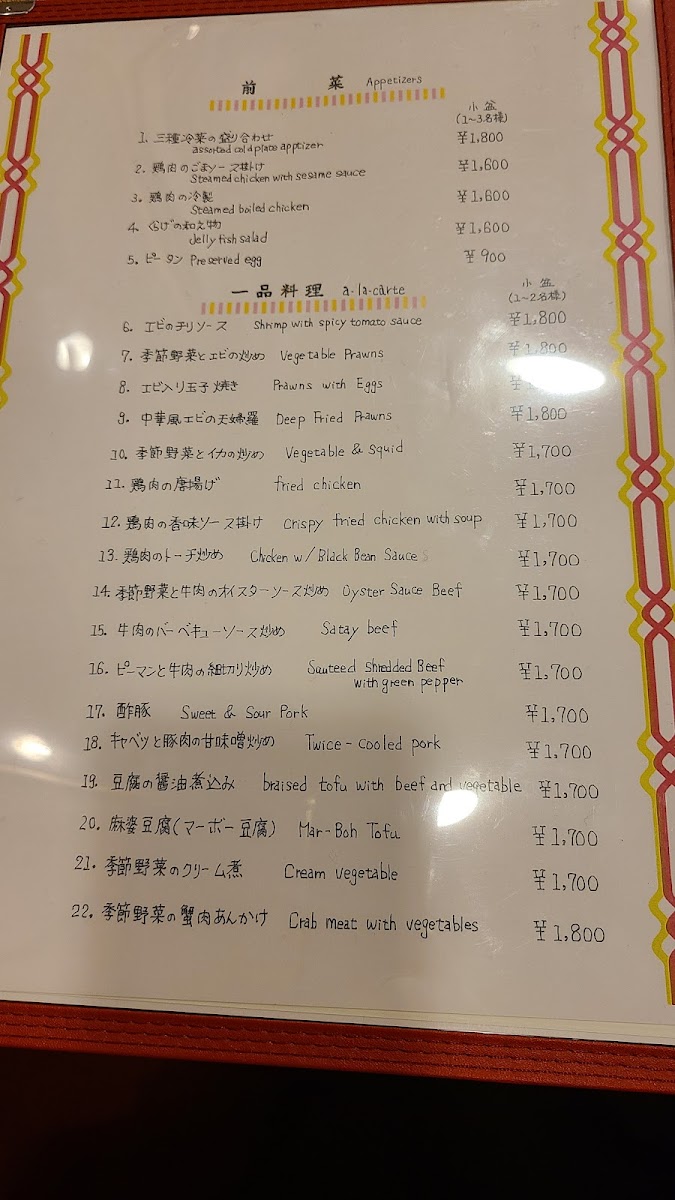 前 菜 Appetizers
小盆
(1~3名様)
1. 三種冷菜の盛り合わせ ¥1,800
assorted cold plate apptizer
2. 鶏肉のごまソース掛け ¥1,600
Steamed chicken with sesame sauce
3. 鶏肉の冷製 ¥1,600
Steamed boiled chicken
4. くらげの和え物 ¥1,600
Jelly fish salad
5. ピータン Preserved egg ¥900
一品料理 a-la-carte
小盆
(1~2名様)
6. エビのチリソース Shrimp with spicy tomato sauce ¥1,800
7. 季節野菜とエビの炒め Vegetable Prawns ¥1,800
8. エビ入り玉子焼き Prawns with Eggs
9. 中華風エビの天婦羅 Deep Fried Prawns ¥1,800
10. 季節野菜とイカの炒め Vegetable & squid ¥1,700
11. 鶏肉の唐揚げ fried chicken ¥1,700
12. 鶏肉の香味ソース掛け Crispy fried chicken with soup ¥1,700
13. 鶏肉のトーチ炒め Chicken w/ Black Bean Sauce ¥1,700
14. 季節野菜と牛肉のオイスターソース炒め Oyster Sauce Beef ¥1,700
15. 牛肉のバーベキューソース炒め Satay beef ¥1,700
16. ピーマンと牛肉の細切り炒め Sauteed Shredded Beef ¥1,700
with green pepper
17. 酢豚 Sweet & Sour Pork ¥1,700
18. キャベツと豚肉の甘味噌炒め Twice-cooled pork ¥1,700
19. 豆腐の醤油煮込み braised tofu with beef and vegetable ¥1,700
20. 麻婆豆腐(マーボー豆腐) Mar-Boh Tofu ¥1,700
21. 季節野菜のクリーム煮 Cream vegetable ¥1,700
22. 季節野菜の蟹肉あんかけ Crab meat with vegetables ¥1,800